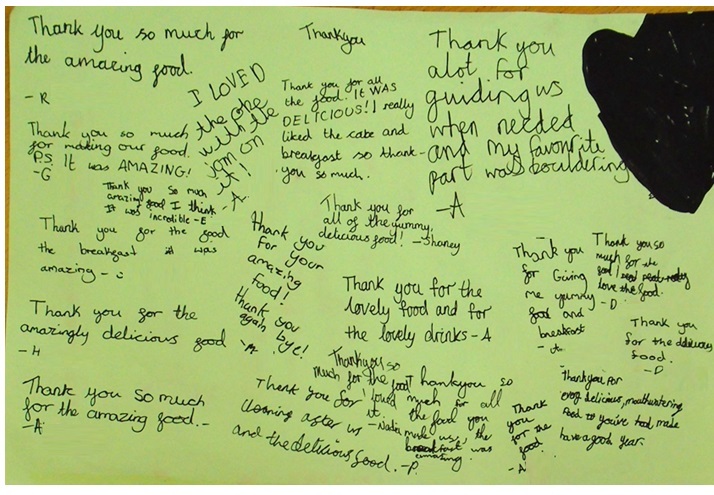 Thank you so much for
the amazing food.
- R
Thankyou
Thank you
alot for
guiding us
when needed
and my favourite
part was bouldering
- A
I LOVED
the one
with the
jam on
it!
- A.
Thank you for all
the food. It WAS
DELICIOUS! I really
liked the cake and
breakfast so thank-
you so much.
Thank you so much
for making our food.
P.S. It was AMAZING!
- G
Thank you so much
amazing food I think
It was incredible - E
Thank you for
all of the yummy,
delicious food! - Shaney
Thank you for the food
the breakfast it was
amazing -
thank you
for your
amazing
food!
thank you
again bye!
Thank you
for Giving
me yummy
food and
breakfast
Thank you so
much for the
love the food.
- D
Thank you for the
lovely food and for
the lovely drinks - A
Thank you
for the delicious
food.
- D
Thank you for the
amazingly delicious food
- H
Thankyou so
much for the food
I loved
it.
- Nadia
Thankyou so
much for all
the food you
made us, the
breakfast was
amazing
- P.
Thank you for
cleaning after us
and the delicious food.
Thank you so much
for the amazing food. -
- A
Thank
you
for the
food
- A
Thankyou for
delicious, mouthwatering
food
have a good year.